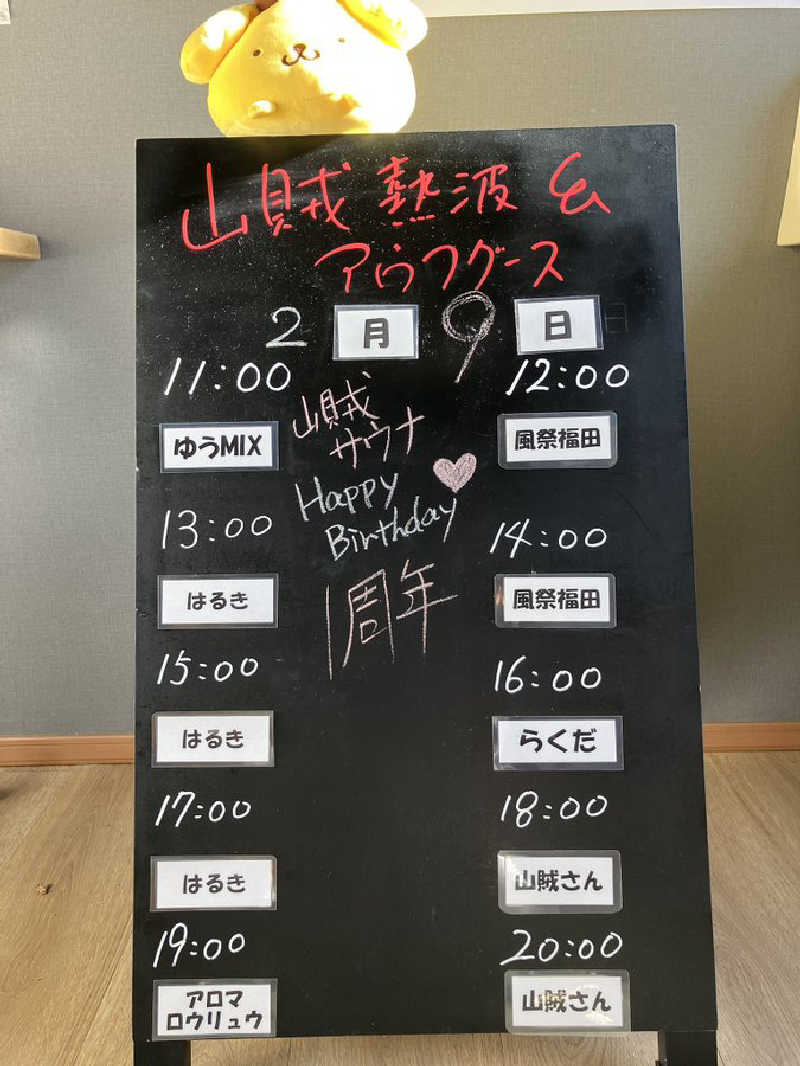 山賊 熱波 &
アウフグース
2 月 9 日
11:00
ゆうMIX
12:00
風祭福田
山賊
サウナ
Happy
Birthday
1周年
13:00
はるき
14:00
風祭福田
15:00
はるき
16:00
らくだ
17:00
はるき
18:00
山賊さん
19:00
アロマ
ロウリュウ
20:00
山賊さん